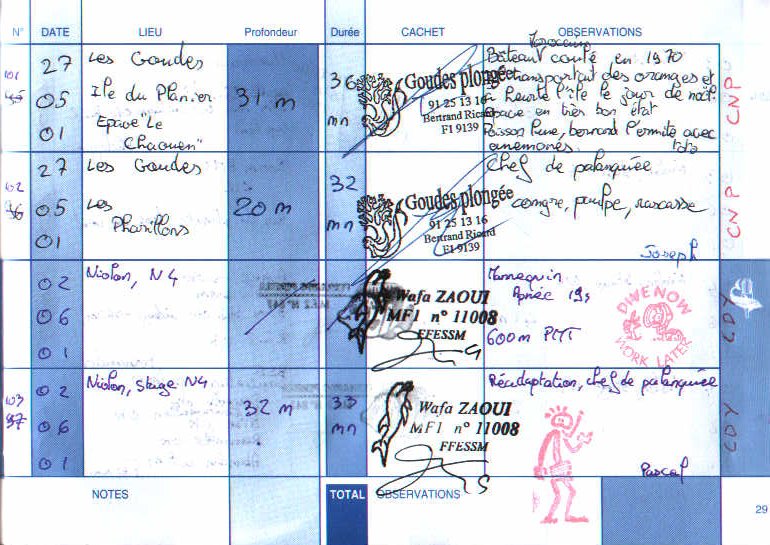 N° DATE LIEU Profondeur Durée CACHET OBSERVATIONS
101
27 05 01
Les Goudes
Ile du Planier
Epave "Le
Chaouen"
31 m
36 mn
Goudes plongée
91 25 13 16
Bertrand Ricard
F1 9139
Marocain
Bâteau coulé en 1970
transportait des oranges et
à heurté l'île le jour de noël
épave en très bon état
Poisson lune, bernard l'ermite avec
anémones. toto
CNP
102
96
27 05 01
Les Goudes
Les
Pharillons
20 m
32 mn
Goudes plongée
91 25 13 16
Bertrand Ricard
F1 9139
Chef de palanquée
congre, poulpe, rascasse
Joseph
CNP
02 06 01
Niolon, N4
Wafa ZAOUI
MF1 n° 11008
FFESSM
Mannequin
Apnée 19s
600m PMT
DIVE NOW
WORK LATER
CDY
103
97
02 06 01
Niolon, Stage N4
32 m
33 mn
Wafa ZAOUI
MF1 n° 11008
FFESSM
Réadaptation, chef de palanquée
Pascal
CDY
NOTES TOTAL OBSERVATIONS
29